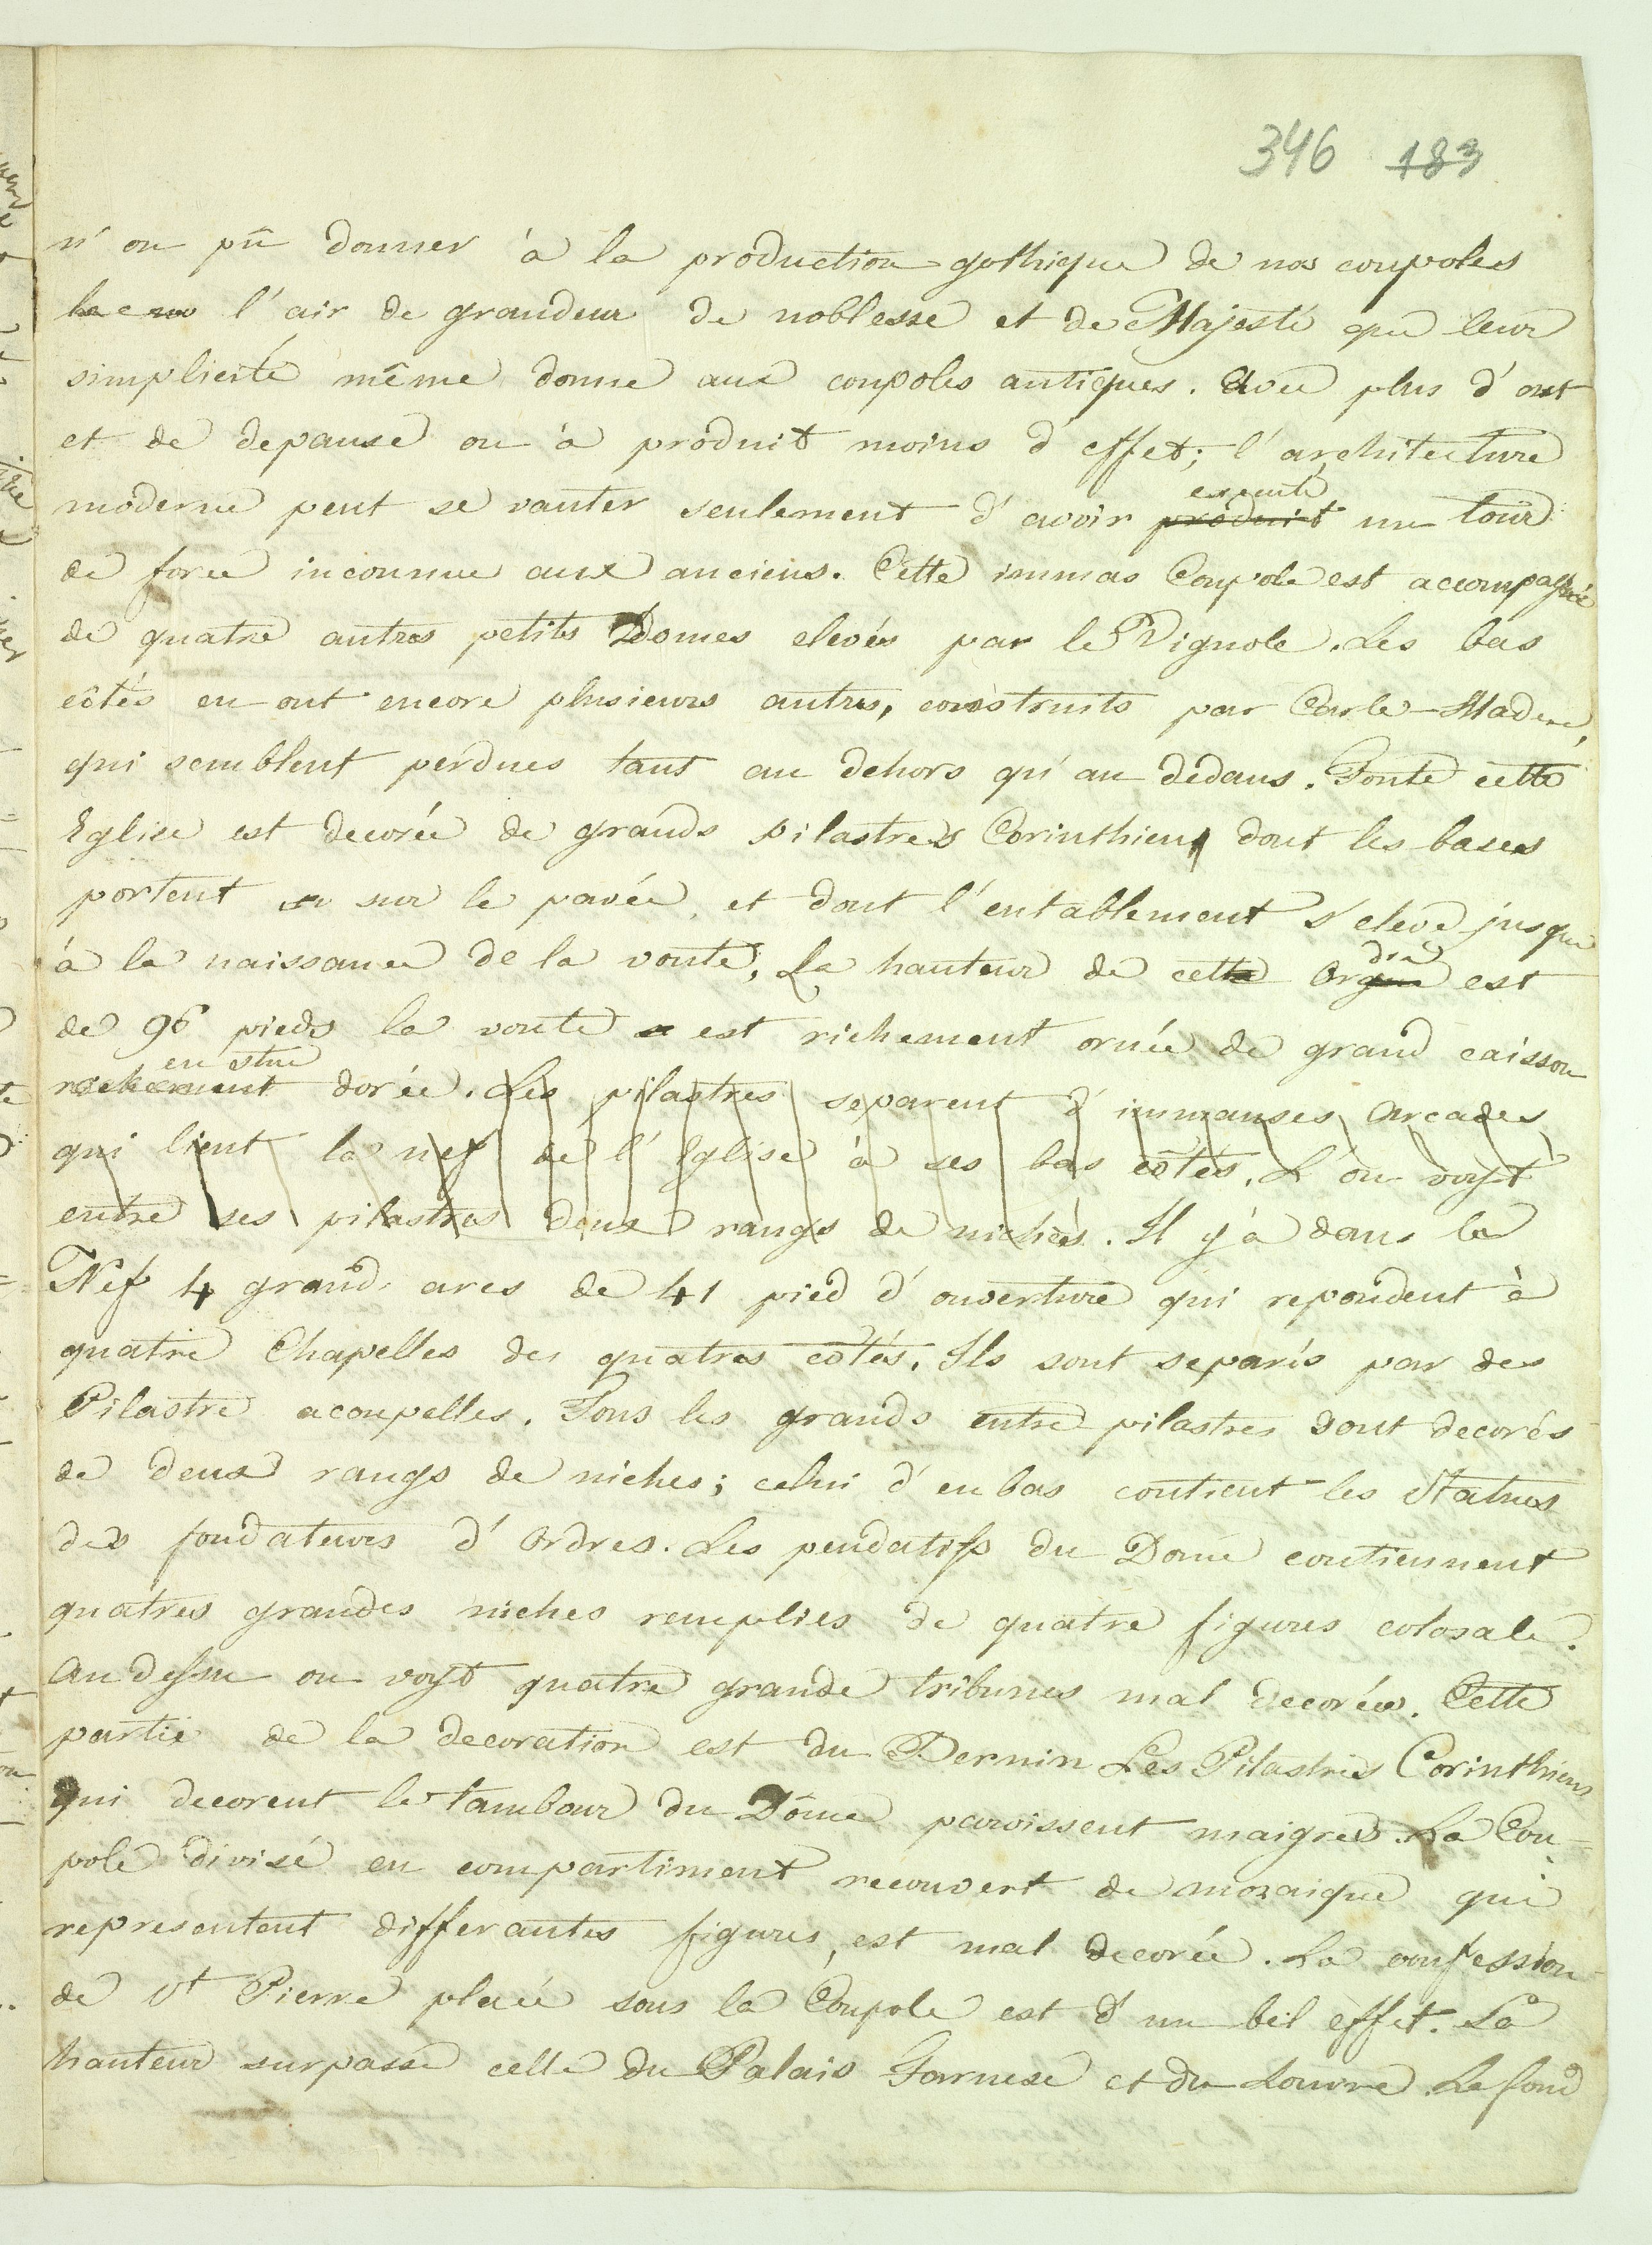 346 183
n'on pû donner à la production gothique de nos coupoles
l'air de grandeur de noblesse et de Majesté que leur
simplicité même donne aux coupoles antiques. Avec plus d'art
et de depanse on à produit moins d'effet; l'architecture
executé
moderne peut se vanter seulement d'avoir produit un tour
de force inconnue aux anciens. Cette immas Coupole est accompagnée
de quatre autres petits Domes elevés par le Vignole. Les bas
côtés en ont encore plusieurs autres, construits par Carle-Maderne,
qui semblent perdues tant au dehors qu'au dedans. Toute cette
Eglise est decorée de grands pilastres Corinthiens dont les bases
portent sur le pavée, et dont l'entablement s'eleve jusque
dre
à la naissance de la voute, La hauteur de cette Orgue est
de 96 pieds la voute est richement ornée de grand caisson
en stuc
richement dorée. Les pilastres separent d'immanses Arcades
qui lient la nef de l'Eglise à ses bas côtés. L'on voyt
entre ses pilastres deux rangs de niches. Il y à dans la
Nef 4 grand arcs de 41 pied d'ouverture qui repondent à
quatre Chapelles des quatres côtés. Ils sont separés par des
Pilastre acoupelles. Tous les grands entre pilastres sont decorés
de deux rangs de niches; celui d'en bas contient les Statues
des fondateurs d'Ordres. Les pendatifs du Dome contiennent
quatres grandes niches remplies de quatre figures colosale.
Au dessu on voyt quatre grande tribunes mal decorées. Cette
partie de la decoration est du Bernin Les Pilastres Corinthiens
qui decorent le tambour du Dôme paroissent maigres. La Cou-
pole divisé en compartiment recouvert de mozaique qui
representent differantes figures, est mal decorée. La confession
de St Pierre placée sous la Coupole est d'un bel effet. La
hauteur surpasse celle du Palais Farnese et du Louvre. Le fond